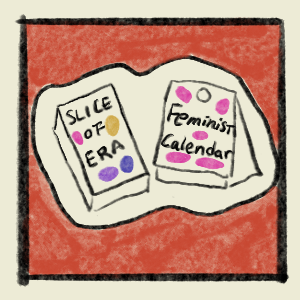 SLICE
OF
ERA
Feminist
Calendar